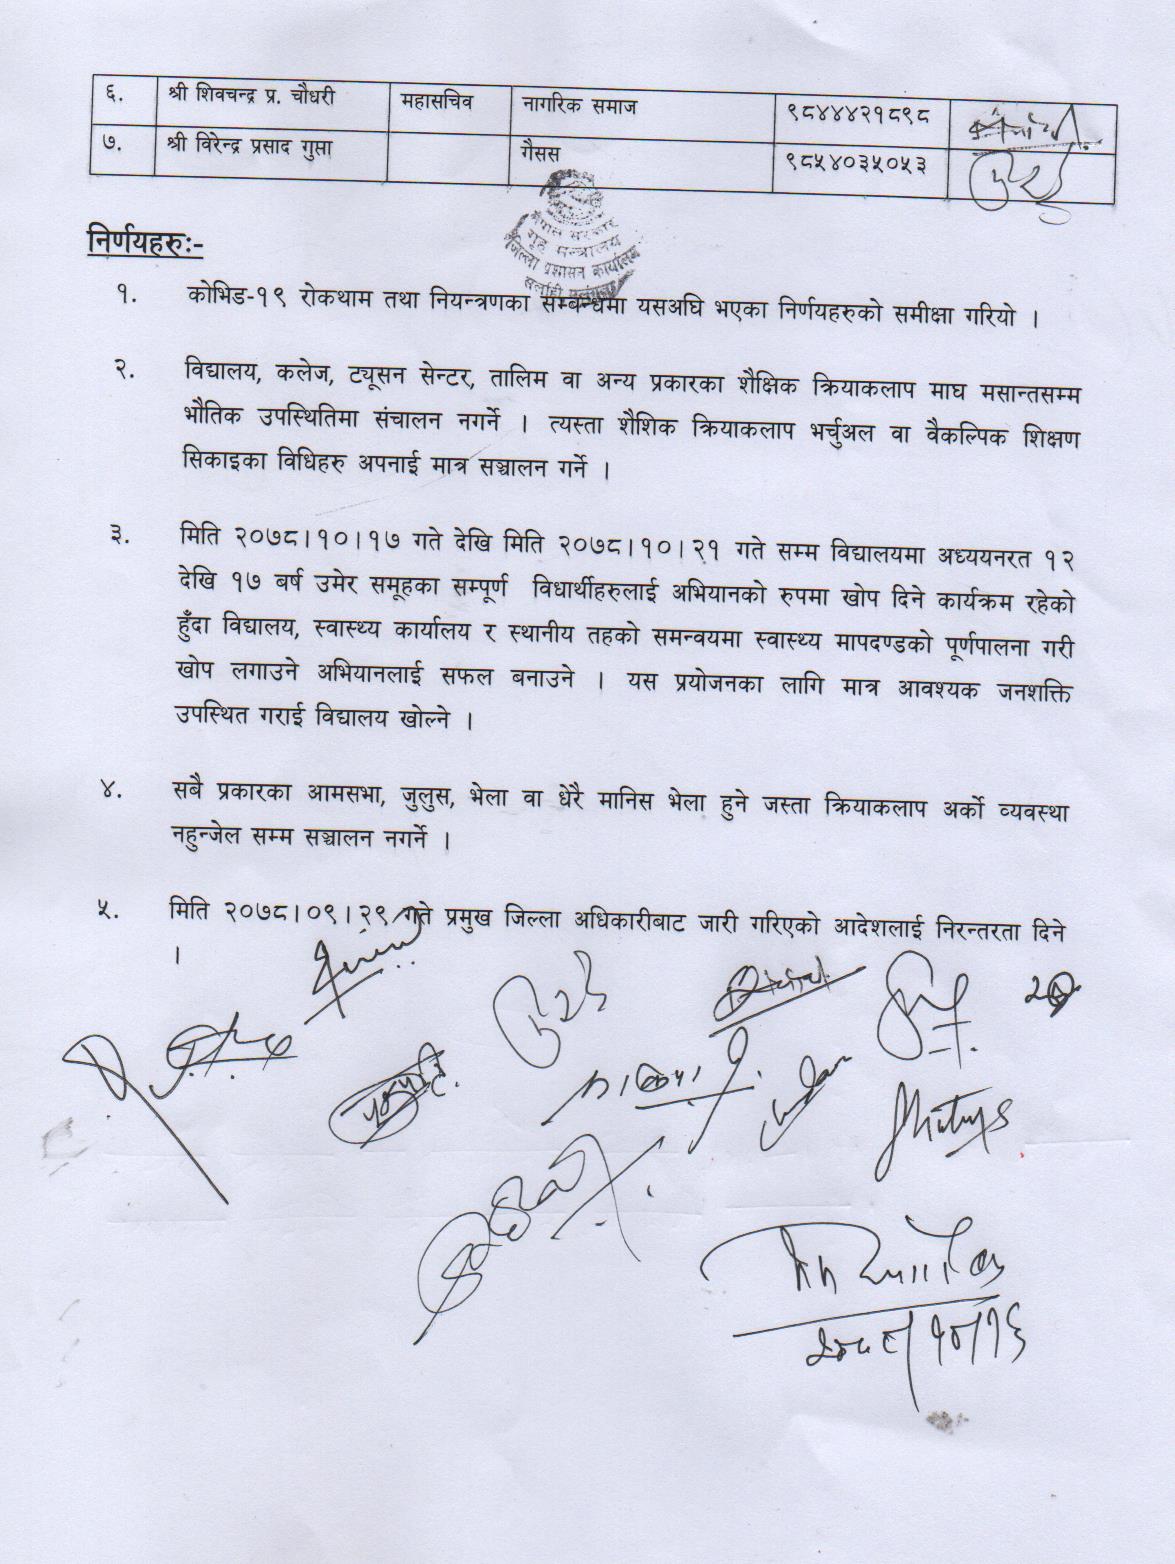 ६. श्री शिवचन्द्र प्र. चौधरी महासचिव नागरिक समाज ९८४४४२१८९८
७. श्री विरेन्द्र प्रसाद गुप्ता गैसस ९८५४०३५०५३
नेपाल सरकार
गृह मन्त्रालय
जिल्ला प्रशासन कार्यालय
सर्लाही मलंगवा
निर्णयहरुः-
१. कोभिड-१९ रोकथाम तथा नियन्त्रणका सम्बन्धमा यसअघि भएका निर्णयहरुको समीक्षा गरियो ।
२. विद्यालय, कलेज, ट्यूसन सेन्टर, तालिम वा अन्य प्रकारका शैक्षिक क्रियाकलाप माघ मसान्तसम्म
भौतिक उपस्थितिमा संचालन नगर्ने । त्यस्ता शैशिक क्रियाकलाप भर्चुअल वा वैकल्पिक शिक्षण
सिकाइका विधिहरु अपनाई मात्र सञ्चालन गर्ने ।
३. मिति २०७८।१०।१७ गते देखि मिति २०७८।१०।२१ गते सम्म विद्यालयमा अध्ययनरत १२
देखि १७ बर्ष उमेर समूहका सम्पूर्ण विधार्थीहरुलाई अभियानको रुपमा खोप दिने कार्यक्रम रहेको
हुँदा विद्यालय, स्वास्थ्य कार्यालय र स्थानीय तहको समन्वयमा स्वास्थ्य मापदण्डको पूर्णपालना गरी
खोप लगाउने अभियानलाई सफल बनाउने । यस प्रयोजनका लागि मात्र आवश्यक जनशक्ति
उपस्थित गराई विद्यालय खोल्ने ।
४. सबै प्रकारका आमसभा, जुलुस, भेला वा धेरै मानिस भेला हुने जस्ता क्रियाकलाप अर्को व्यवस्था
नहुन्जेल सम्म सञ्चालन नगर्ने ।
५. मिति २०७८।०९।२९ गते प्रमुख जिल्ला अधिकारीबाट जारी गरिएको आदेशलाई निरन्तरता दिने
।